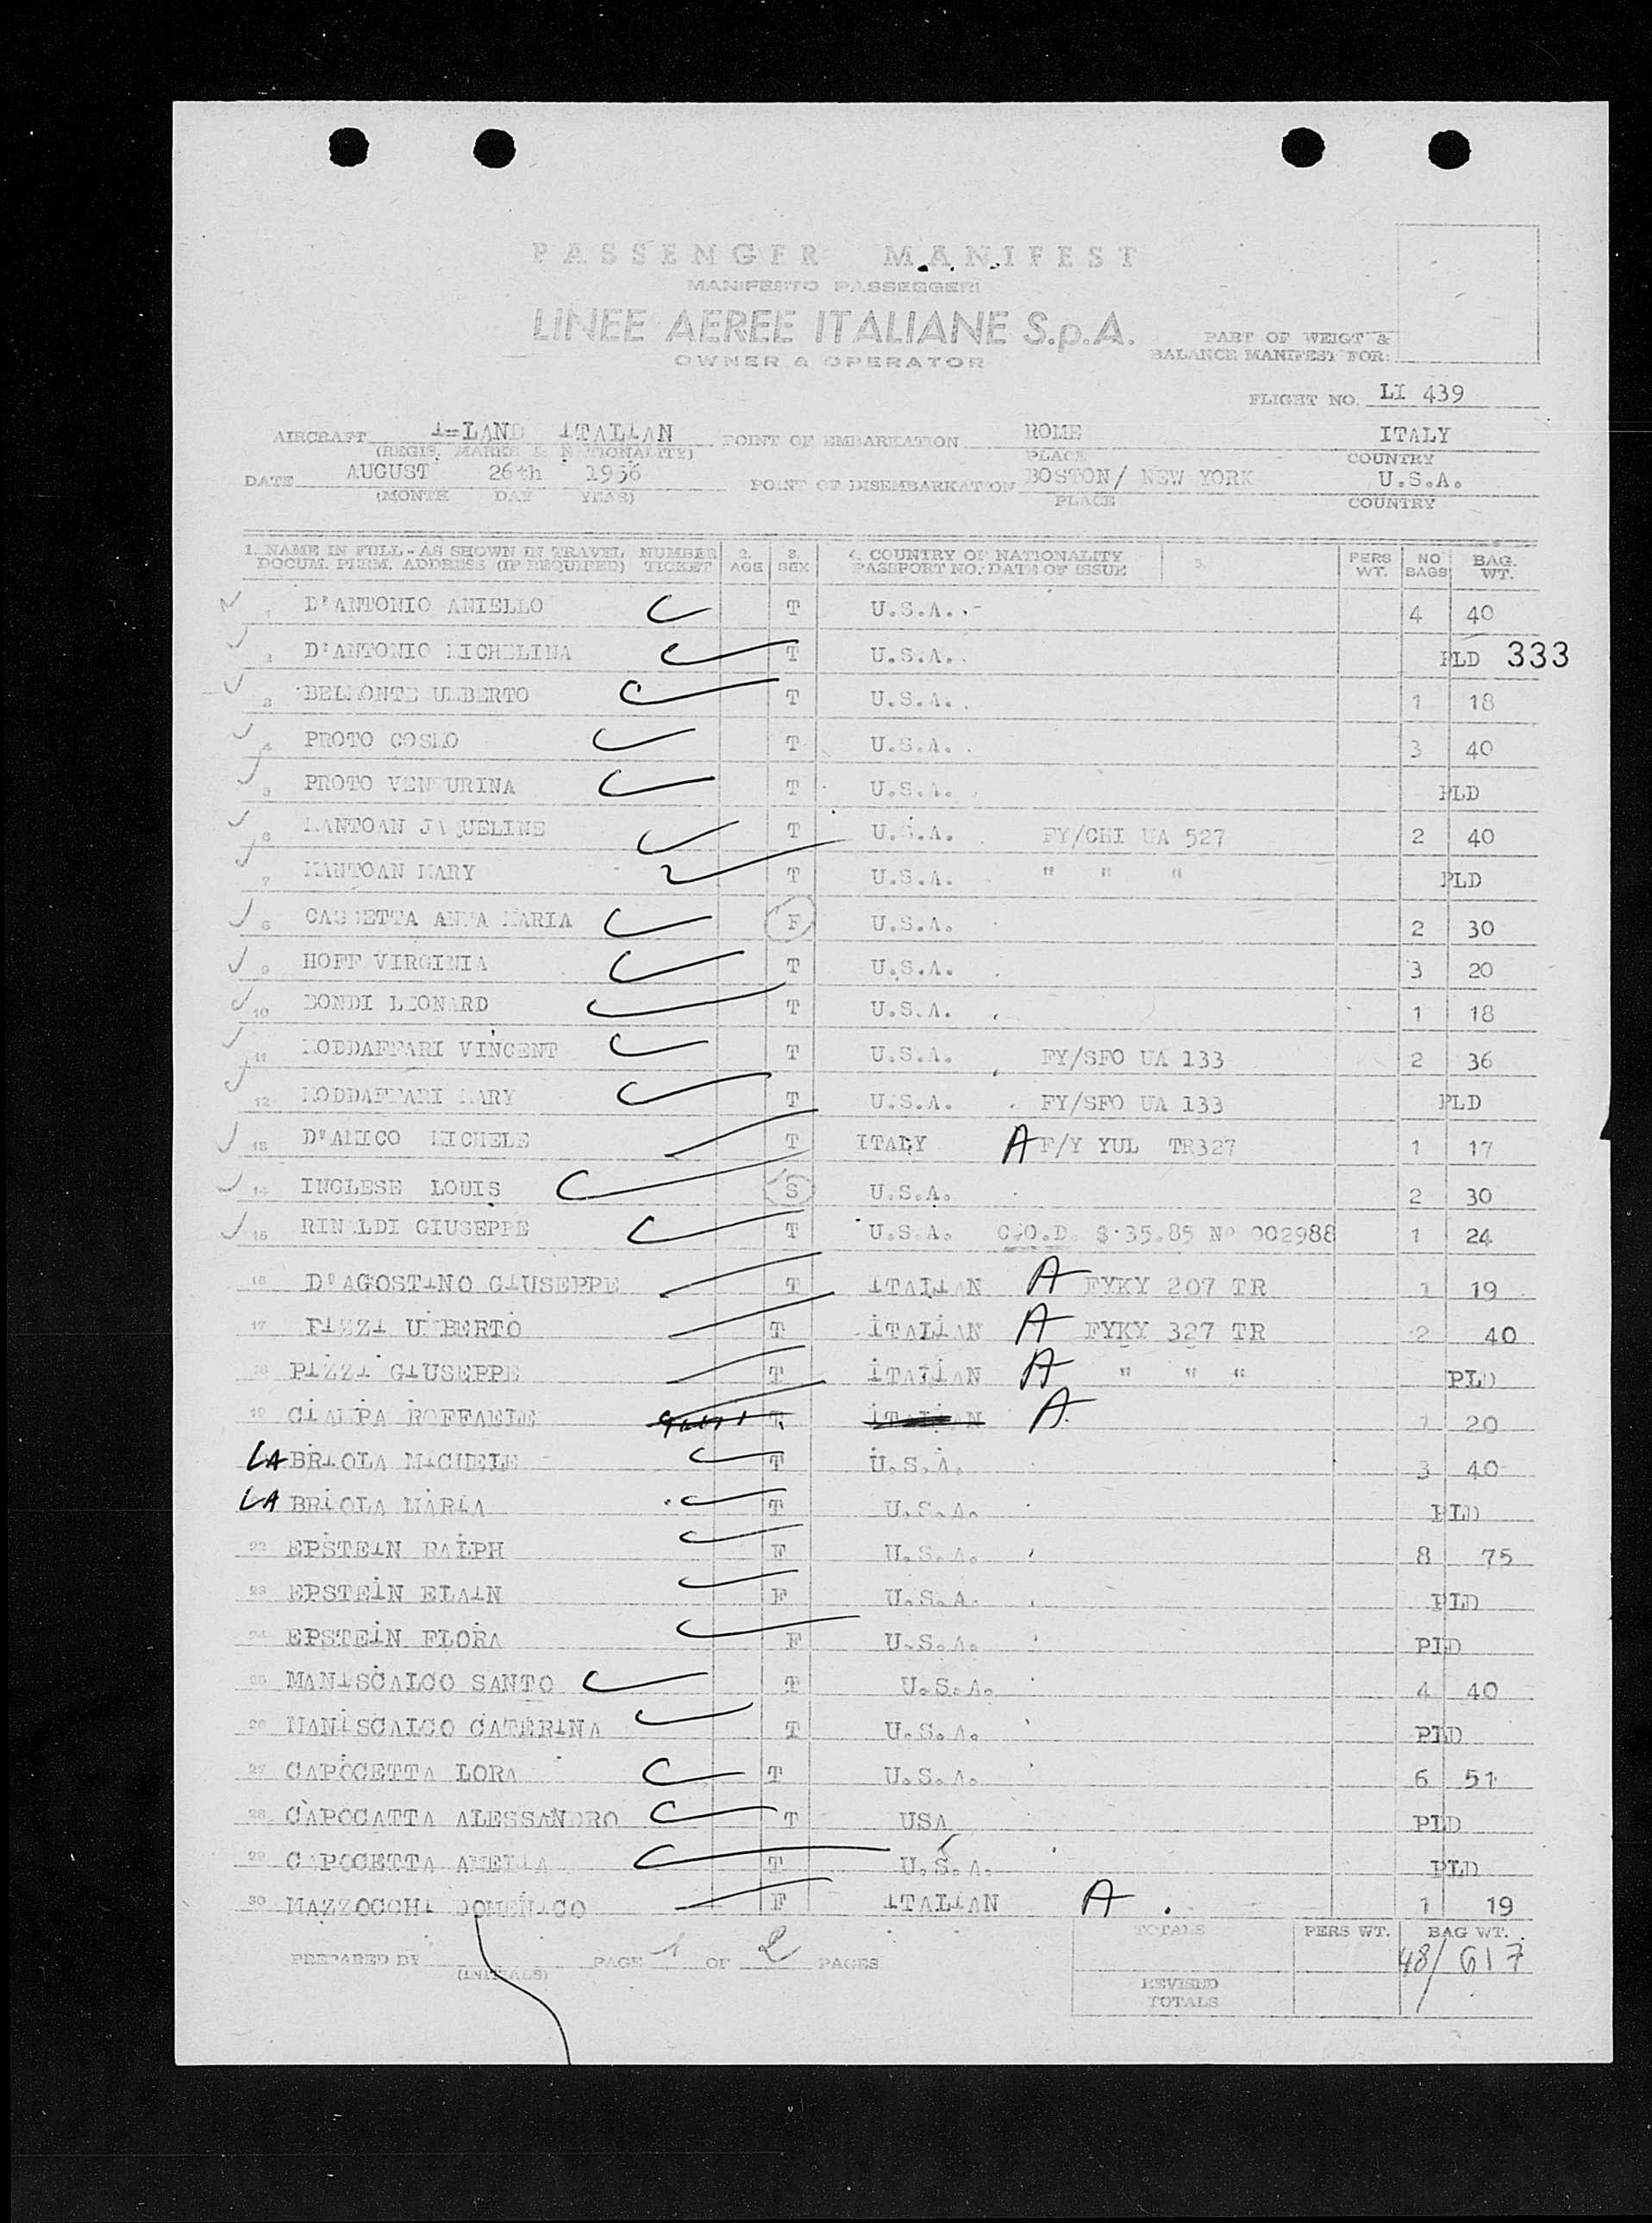 PASSENGER MANIFEST
MANIFESTO PASSEGGERI
LINEE AEREE ITALIANE S.p.A.
OWNER & OPERATOR
PART OF WEIGT &
BALANCE MANIFEST FOR:
FLIGHT NO. LI 439
AIRCRAFT I-LAND ITALIAN POINT OF EMBARKATION ROME ITALY
(REGIS. MARKS & NATIONALITY) PLACE COUNTRY
DATE AUGUST 26th 1956 POINT OF DISEMBARKATION BOSTON/ NEW YORK U.S.A.
(MONTH DAY YEAR) PLACE COUNTRY
1. NAME IN FULL - AS SHOWN IN TRAVEL NUMBER 2. 3. 4. COUNTRY OF NATIONALITY 5. PERS NO BAG.
DOCUM. PERM. ADDRESS (IF REQUITED) TICKET AGE SEX PASSPORT NO. DATE OF ISSUE WT. BAGS WT.
1 D'ANTONIO ANIELLO T U.S.A. 4 40
2 D'ANTONIO MICHELINA T U.S.A. PLD 333
3 BELMONTE UMBERTO T U.S.A. 1 18
4 PROTO COSMO T U.S.A. 3 40
5 PROTO VENTURINA T U.S.A. PLD
6 MANTOAN JAQUELINE T U.S.A. FY/CHI UA 527 2 40
7 MANTOAN MARY T U.S.A. " " " PLD
8 CASSETTA ANNA MARIA F U.S.A. 2 30
9 HOFF VIRGINIA T U.S.A. 3 20
10 BONDI LEONARD T U.S.A. 1 18
11 MODDAFFARI VINCENT T U.S.A. FY/SFO UA 133 2 36
12 MODDAFFARI MARY T U.S.A. FY/SFO UA 133 PLD
13 D'AMICO MICHELE T ITALY A F/Y YUL TR327 1 17
14 INGLESE LOUIS S U.S.A. 2 30
15 RINALDI GIUSEPPE T U.S.A. C.O.D. $.35.85 Nº 002988 1 24
16 D'AGOSTINO GIUSEPPE T ITALIAN A FYKY 207 TR 1 19
17 PIZZI UMBERTO T ITALIAN A FYKY 327 TR 2 40
18 PIZZI GIUSEPPE T ITALIAN A " " " PLD
19 CIAMPA ROFFAELE T ITALIAN A 1 20
LA BRIOLA MICHELE T U.S.A. 3 40
LA BRIOLA MARIA T U.S.A. PLD
22 EPSTEIN RALPH F U.S.A. 8 75
23 EPSTEIN ELAIN F U.S.A. PLD
24 EPSTEIN FLORA F U.S.A. PLD
25 MANISCALCO SANTO T U.S.A. 4 40
26 MANISCALCO CATERINA T U.S.A. PLD
27 CAPOCETTA LORA T U.S.A. 6 51
28 CAPOCATTA ALESSANDRO T USA PLD
29 CAPOCETTA AMELIA T U.S.A. PLD
30 MAZZOCCHI DOMENICO F ITALIAN A 1 19
TOTALS PERS WT. BAG WT.
PREPARED BY PAGE 1 OF 2 PAGES 48/ 617
(INITIALS)
REVISED
TOTALS